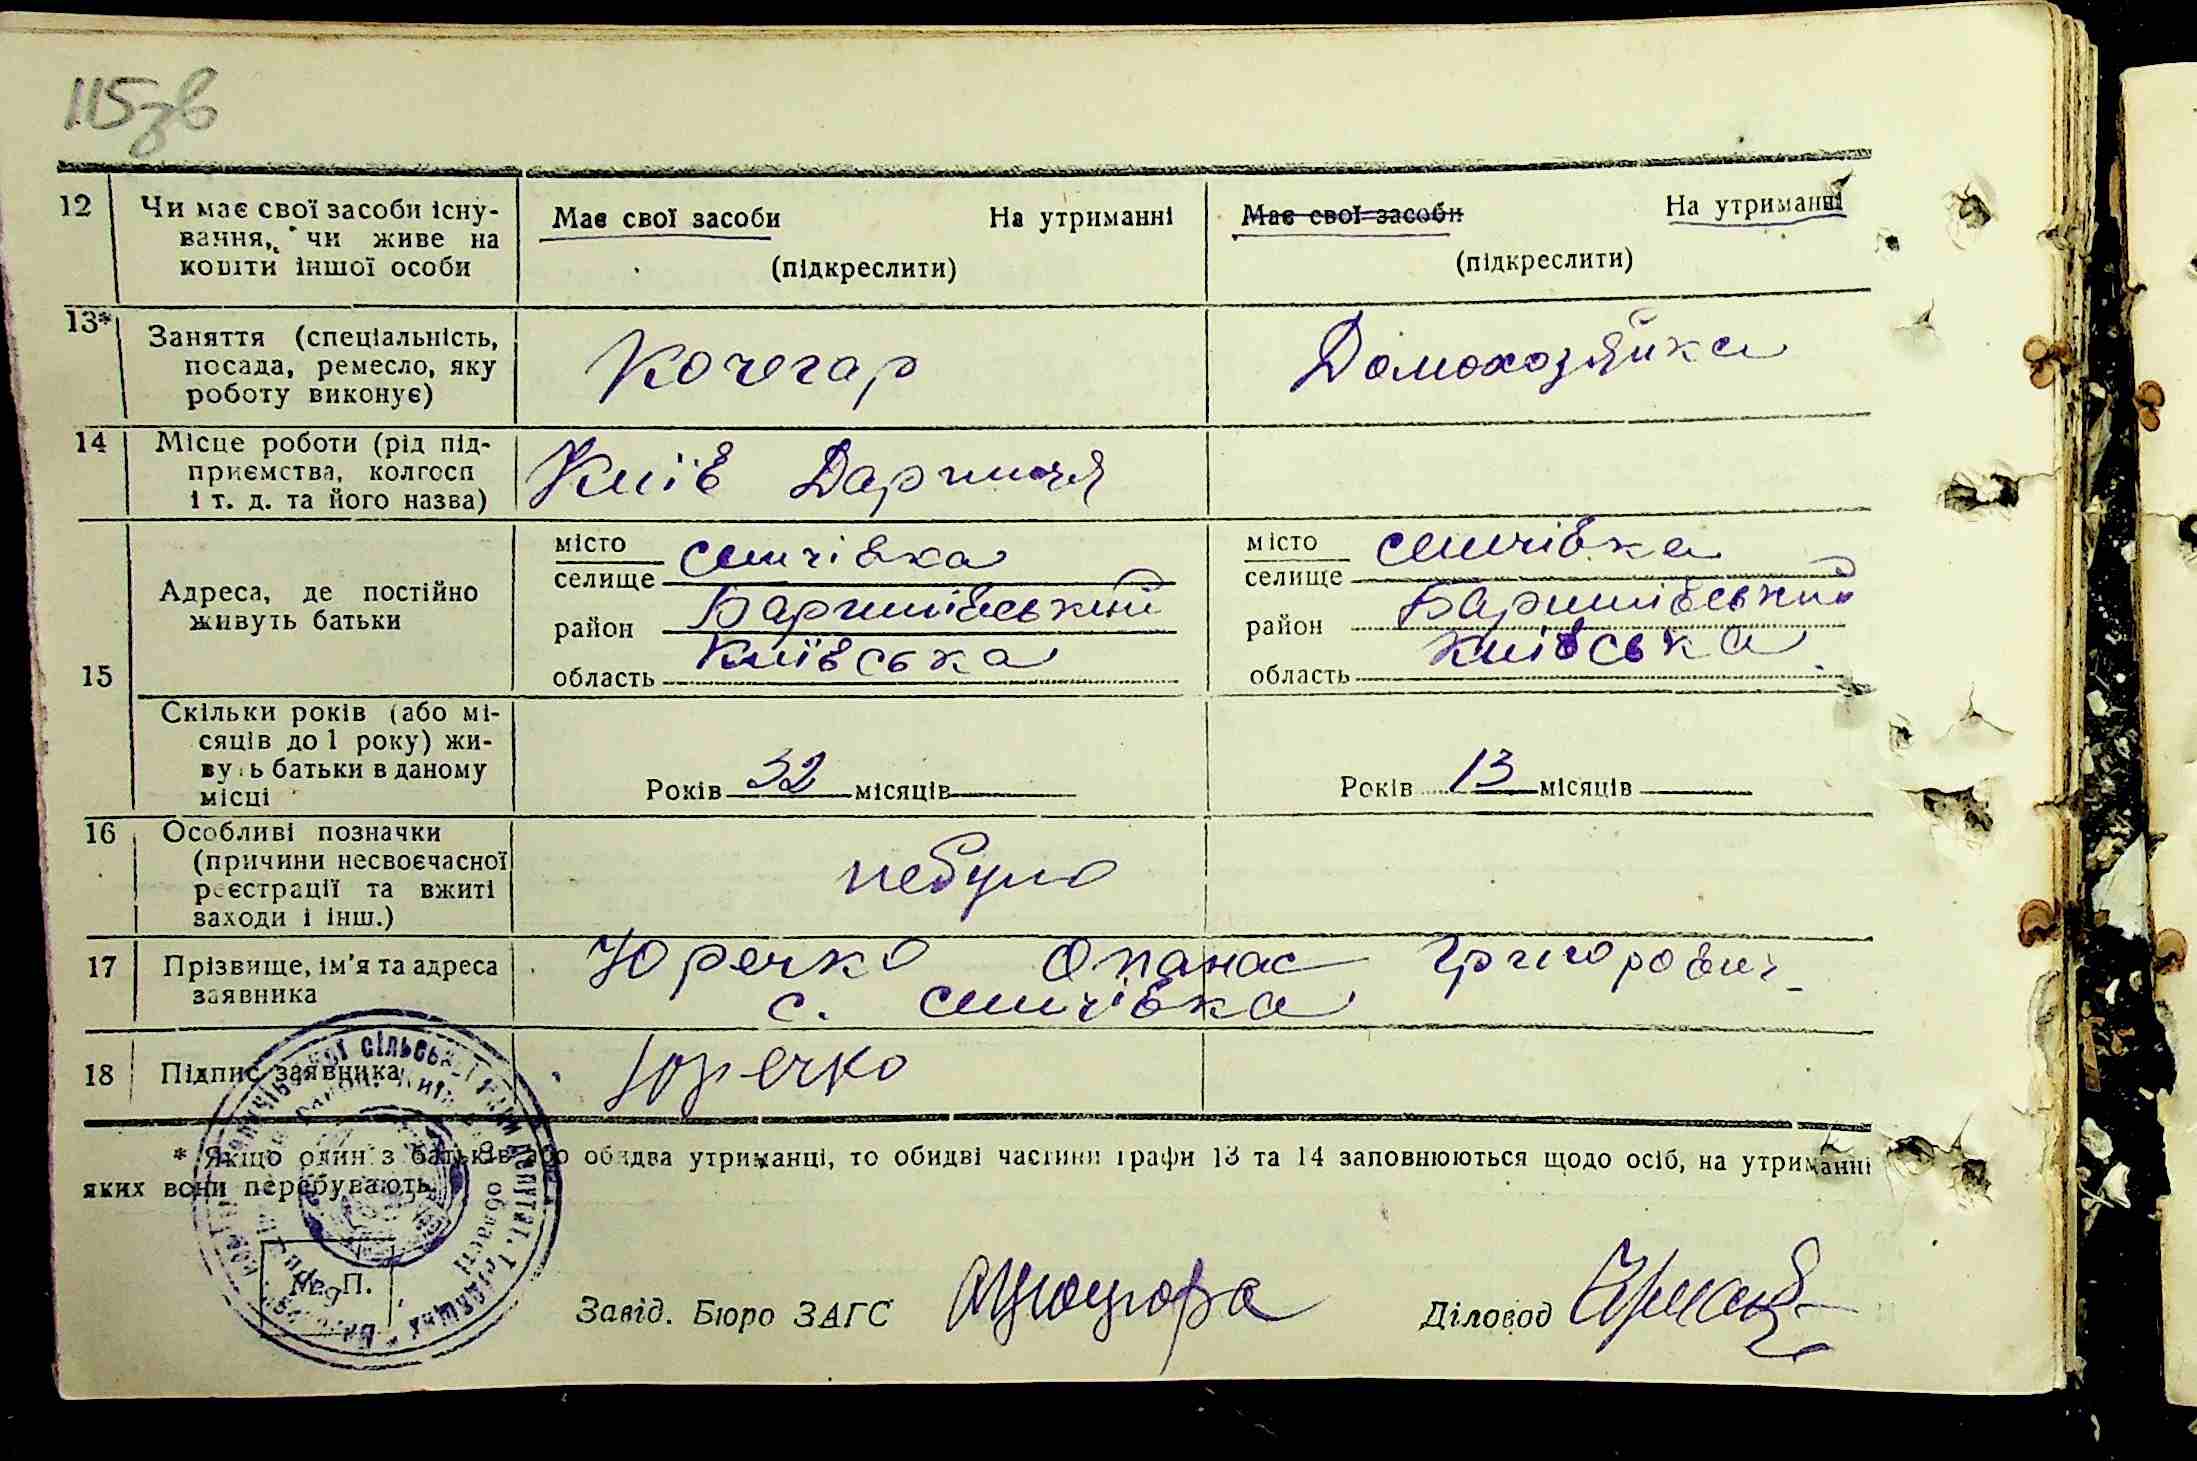 115зв
12 Чи має свої засоби існу-
вання, чи живе на
кошти іншої особи
Має свої засоби На утриманні
(підкреслити)
Має свої засоби На утриманні
(підкреслити)
13* Заняття (спеціальність,
посада, ремесло, яку
роботу виконує)
Кочегар
Домохозяйка
14 Місце роботи (рід під-
приємства, колгосп
і т. д. та його назва)
Київ Дарниця
15 Адреса, де постійно
живуть батьки
місто
селище семчівка
район Баришівський
область Київська
місто
селище семчівка
район Баришівський
область Київська
Скільки років (або мі-
сяців до 1 року) жи-
вуть батьки в даному
місці
Років 32 місяців
Років 13 місяців
16 Особливі позначки
(причини несвоєчасної
реєстрації та вжиті
заходи і інш.)
небуло
17 Прізвище, ім'я та адреса
заявника
Юречко Опанас Григорович
с. семчівка
18 Підпис заявника
Юречко
* Якщо один з батьків або обидва утриманці, то обидві частини графи 13 та 14 заповнюються щодо осіб, на утриманні
яких вони перебувають.
М. П.
Завід. Бюро ЗАГС
Діловод